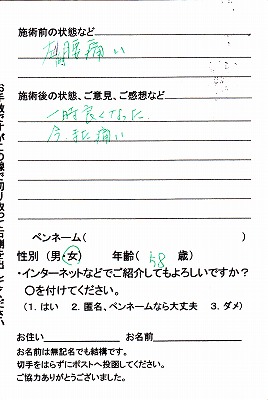 施術前の状態など
肩腰痛い
施術後の状態、ご意見、ご感想など
一時良くなった
今、また痛い
ペンネーム(　　　)
性別(男・女)　年齢(58歳)
・インターネットなどでご紹介してもよろしいですか？
○を付けてください。
(1. はい　2. 匿名、ペンネームなら大丈夫　3. ダメ)
お住い　お名前
お名前は無記名でも結構です。
切手をはらずにポストへ投函してください。
ご協力ありがとうございました。
お手数ですがこの線で切り取って右側を出してください